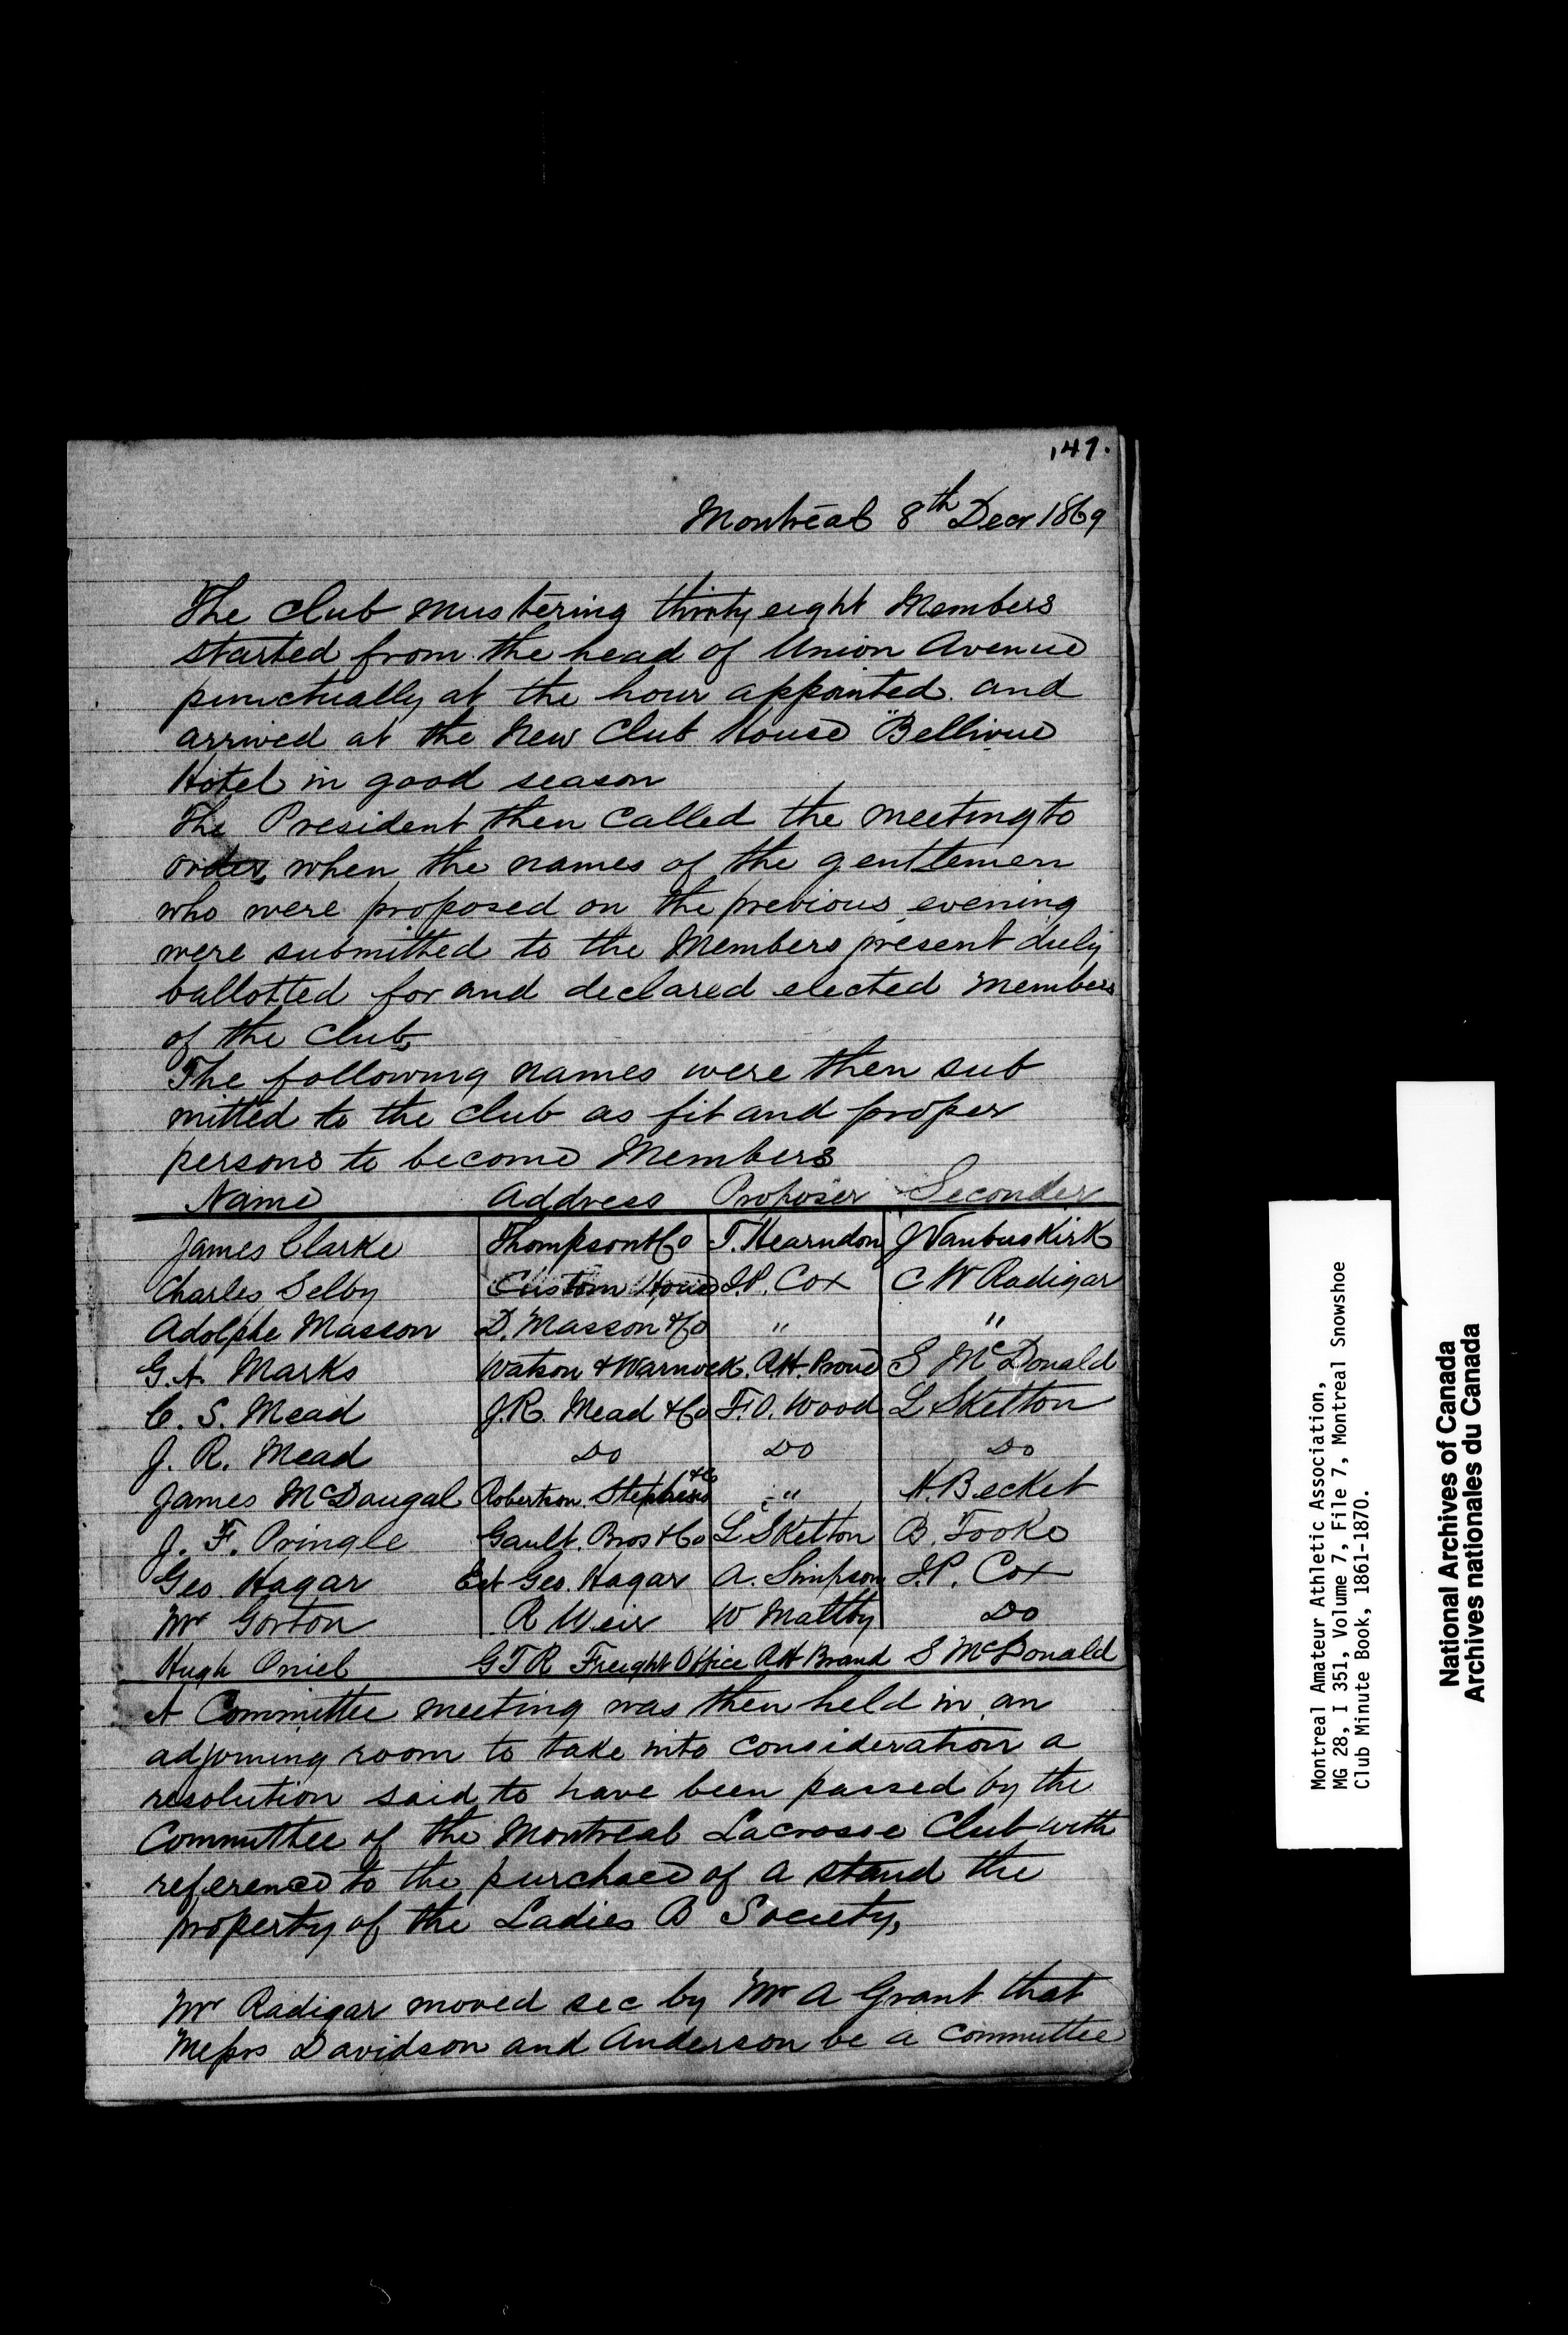 147.
Montreal 8th Decr 1869
The Club mustering thirty eight Members
started from the head of Union Avenue
punctually at the hour appointed. and
arrived at the New Club House "Bellivue
Hotel in good season
The President then called the meeting to
order, when the names of the gentlemen
who were proposed on the previous evening
were submitted to the Members present duly
ballotted for and declared elected members
of the Club,
The following names were then sub
mitted to the Club as fit and proper
persons to become Members
Name Address Proposer Seconder
James Clarke Thompson & Co T. Hearndon J Vanbuskirk
Charles Selby Custom House J.P. Cox C W Radigar
Adolphe Masson D. Masson & Co " "
G. A. Marks Watson & Warnock. AH. S McDonald
C. S. Mead J.R. Mead & Co F.O. Wood L Skelton
J. R. Mead Do Do Do
James McDougal Robertson. Stephens & Co " H. Becket
J. F. Pringle Gault. Bros & Co L Skelton B. Tooke
Geo. Hagar Est Geo. Hagar A. Simpson J.P. Cox
Mr Gorton R Weir W Maltby Do
Hugh Oniel GTR Freight Office AH Brand S McDonald
A Committee meeting was then held in an
adjoining room to take into consideration a
resolution said to have been passed by the
Committee of the Montreal Lacrosse Club with
reference to the purchase of a stand the
property of the Ladies B Society,
Mr Radigar moved sec by Mr A Grant that
Messrs Davidson and Anderson be a committee
Montreal Amateur Athletic Association,
MG 28, I 351, Volume 7, File 7, Montreal Snowshoe
Club Minute Book, 1861-1870.
National Archives of Canada
Archives nationales du Canada